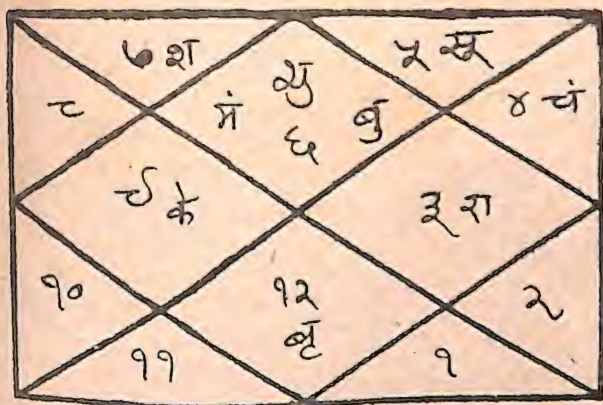 ७ श
५ सू
८
मं
शु
६
बु
४ चं
९ के
३ रा
१०
१२
बृ
२
११
१